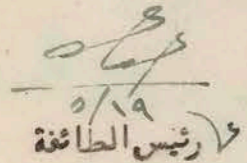 ٥/١٩
ع/ رئيس الطائفة